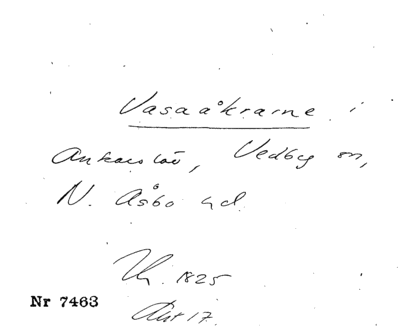 Vasaåkrarne i
Ankarslöv, Vedby sn,
N. Åsbo hd.
Uh. 1825
Nr 7463
Akt 17.